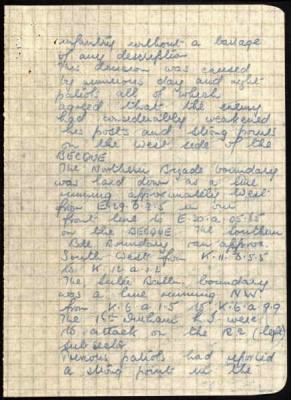 infantry without a barrage
of any description
This decision was caused
by numerous day and night
patrols all of which
agreed that the enemy
had considerably weakened
his posts and strong points
on the West side of the
BECQUE
The Northern Brigade boundary
was laid down as a line
running approximately West
from E.29.B.2.5 our
front line to E.20.a.05.85
on the BECQUE. The Southern
Bde Boundary ran approx.
South West from K.11.B.5.5
to K.12.a.1.2
The Inter Battn boundary
was a line running NW
from K.6.a.1.5 to K.6.a.9.9
The 15th were
to attack on the R2 (left)
sub sector
Previous patrols had reported
a strong point in the